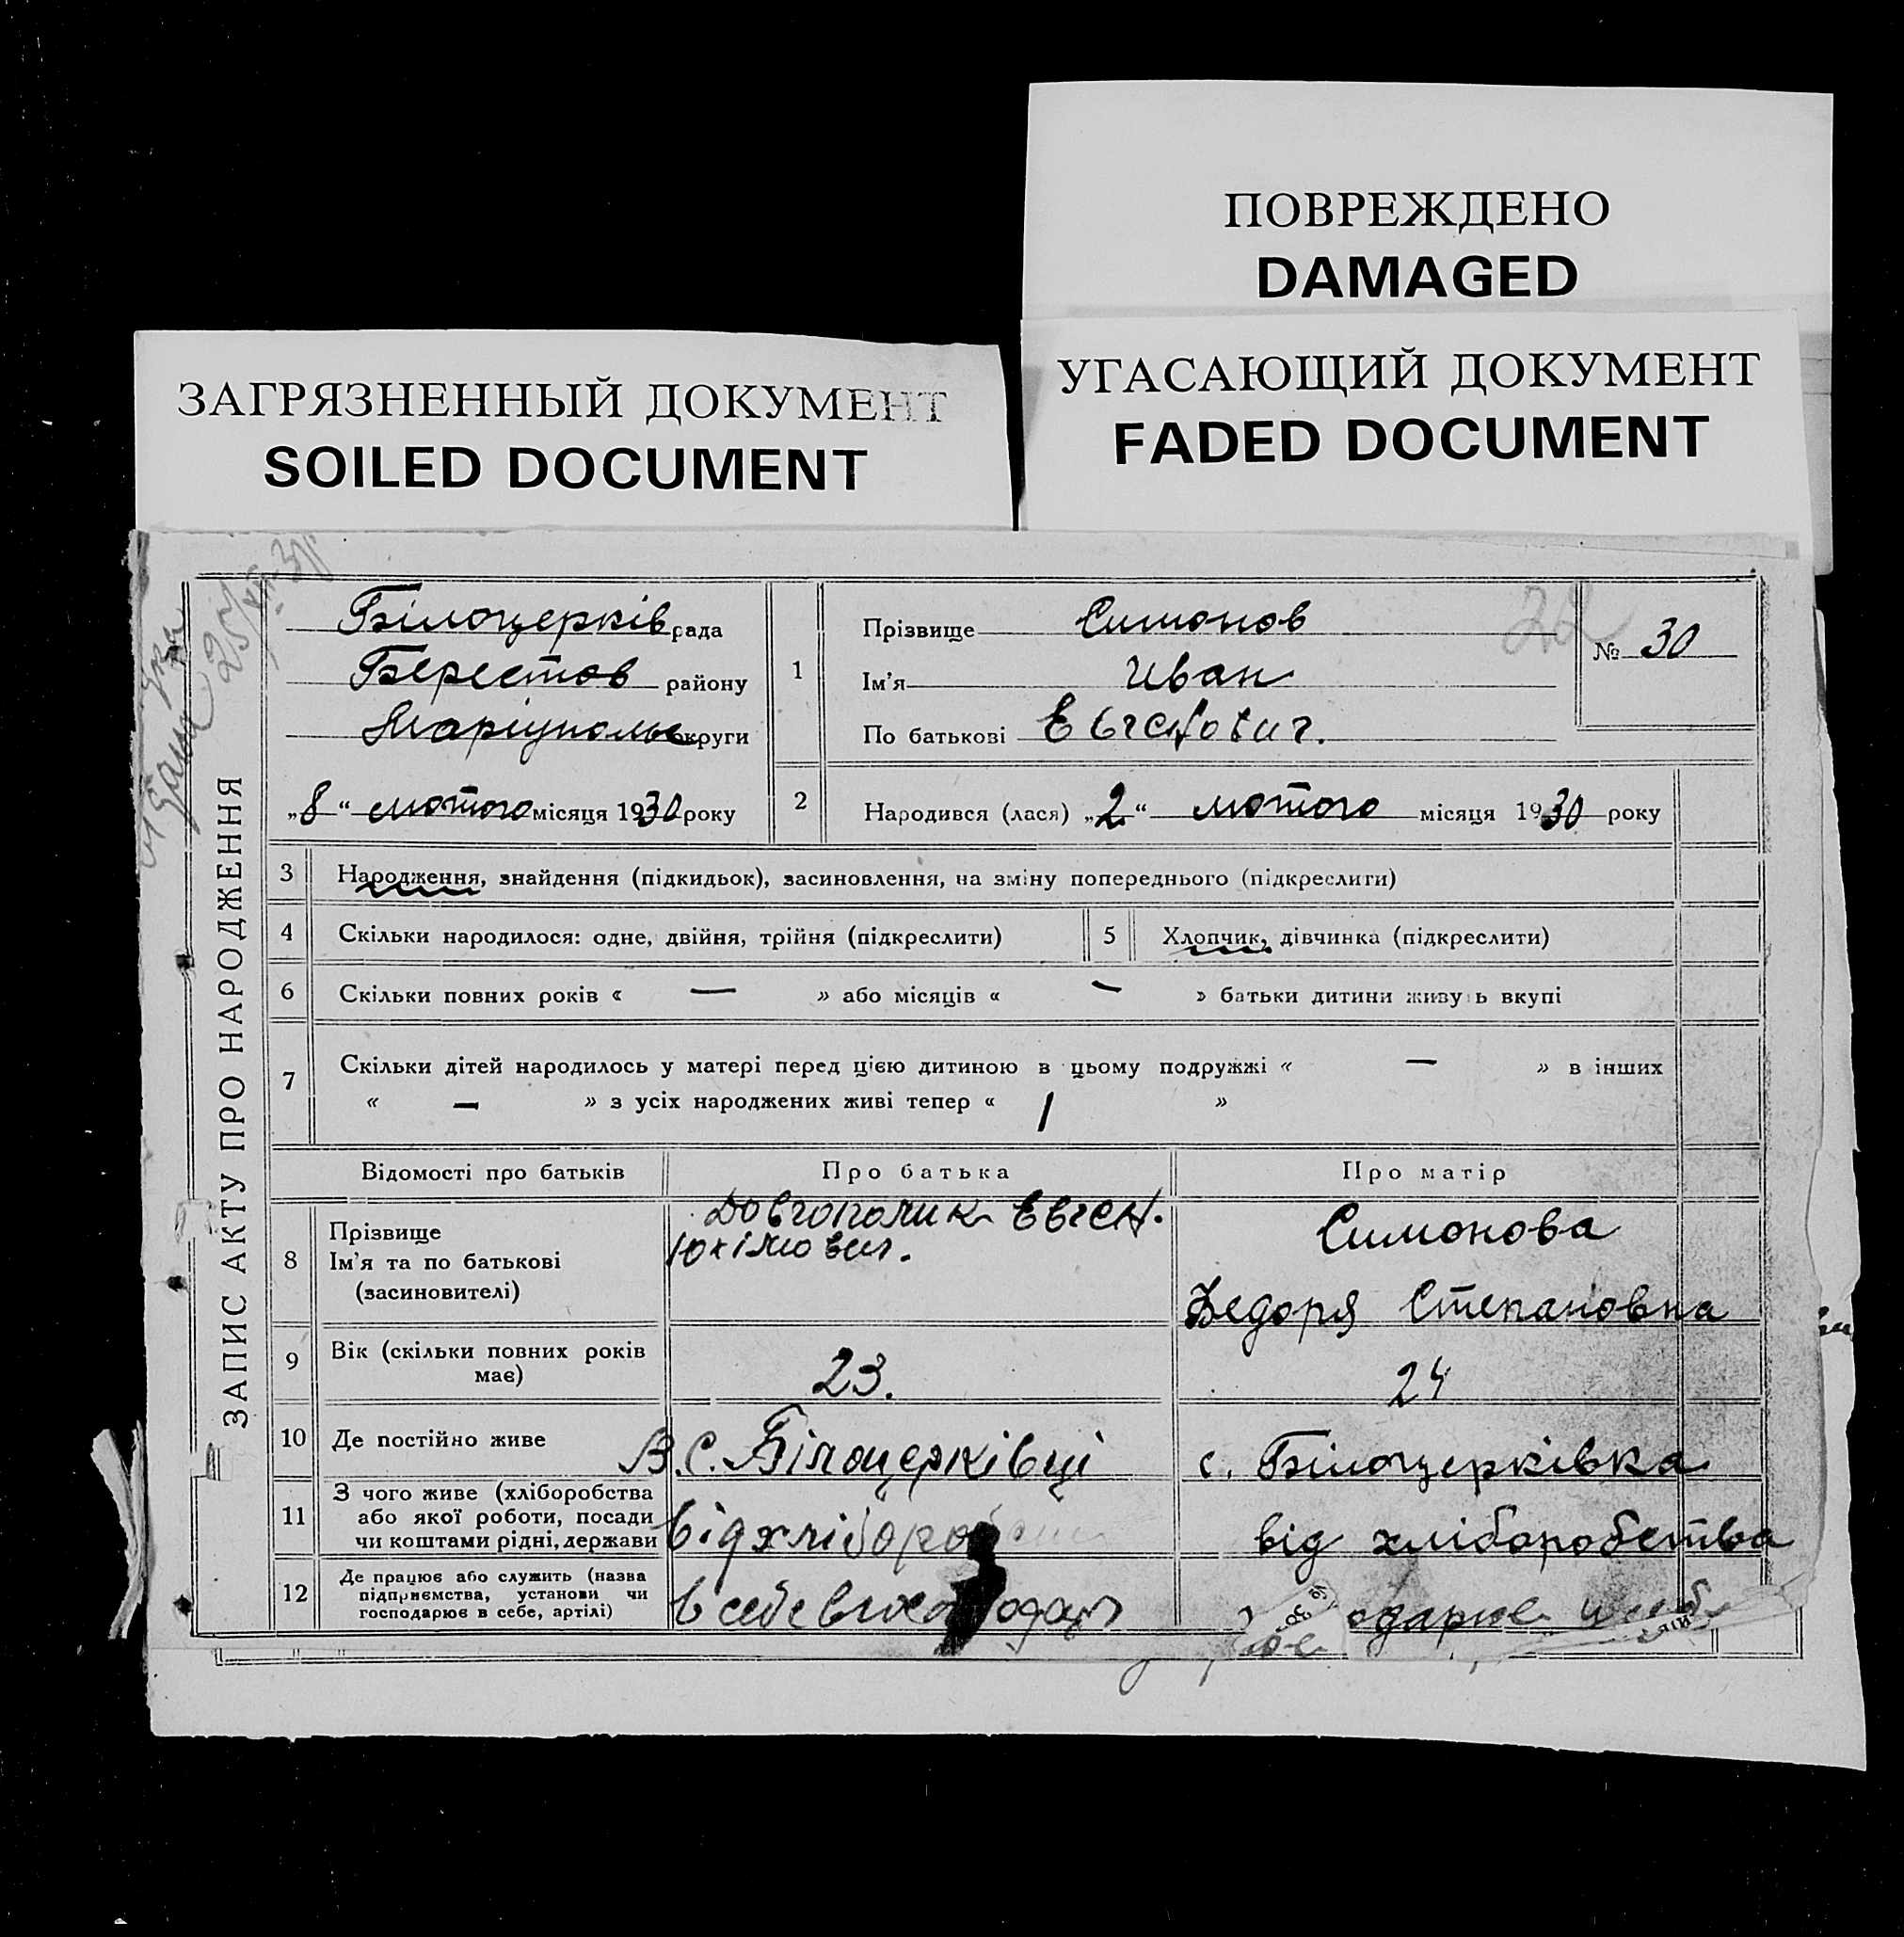 ПОВРЕЖДЕНО
DAMAGED
ЗАГРЯЗНЕННЫЙ ДОКУМЕНТ
SOILED DOCUMENT
УГАСАЮЩИЙ ДОКУМЕНТ
FADED DOCUMENT
ЗАПИС АКТУ ПРО НАРОДЖЕННЯ
Білоцерків рада
Берестов району
Маріуполь округи
„8“ лютого місяця 1930 року
1
Прізвище Симонов
Ім'я Иван
По батькові Евгенович.
22
№ 30
2 Народився (лася) „2“ лютого місяця 1930 року
3 Народження, знайдення (підкидьок), засиновлення, на зміну попереднього (підкреслити)
4 Скільки народилося: одне, двійня, трійня (підкреслити) 5 Хлопчик, дівчинка (підкреслити)
6 Скільки повних років « — » або місяців « — » батьки дитини живуть вкупі
7 Скільки дітей народилось у матері перед цією дитиною в цьому подружжі « — » в інших
« — » з усіх народжених живі тепер « 1 »
Відомості про батьків Про батька Про матір
8 Прізвище
Ім'я та по батькові
(засиновителі)
Довгополик Евген.
Юхімович.
Симонова
Федоря Степановна
9 Вік (скільки повних років
має)
23. 24
10 Де постійно живе В.С. Білоцерківці с. Білоцерківка
11 З чого живе (хліборобства
або якої роботи, посади
чи коштами рідні, держави
від хлібороб від хліборобства
12 Де працює або служить (назва
підприємства, установи чи
господарює в себе, артілі)
в себе